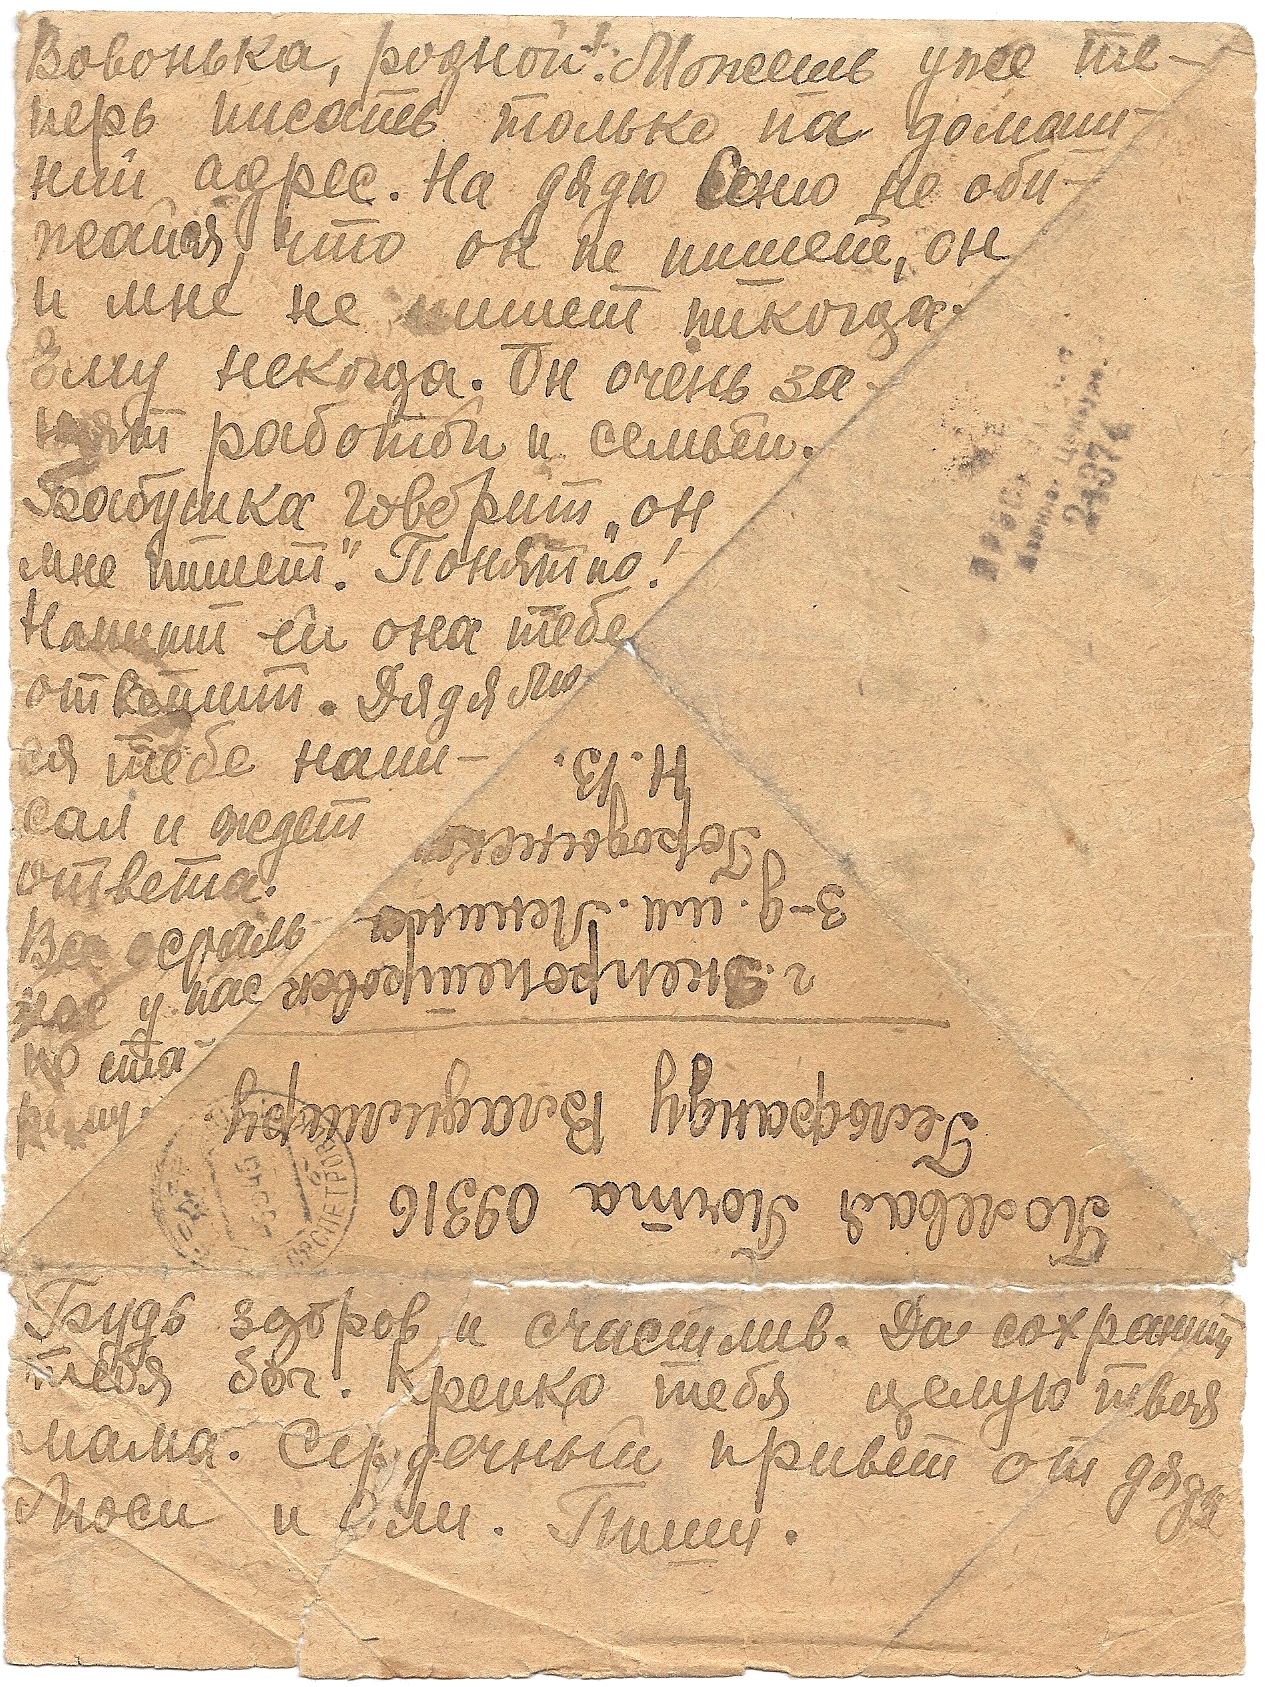 Вовонька, родной! Можешь уже те-
перь писать только на домаш-
ний адрес. На дядю Сеню не оби-
жайся, что он не пишет, он
и мне не пишет никогда.
Ему некогда. Он очень за-
нят работой и семьёй.
Бабушка говорит „он
мне пишет". Понятно!
Напиши ей она тебе
ответит. Дядя Лю
ся тебе напи-
сал и ждет
ответа.
Все осталь
ное у нас
по ста-
Полевая Почта 09316
Гельфанду Владимиру
г. Днепропетровск
3-д. им. Ленина
Н. 13.
Просмотрено
Военной Цензурой
21374
Будь здоров и счастлив. Да сохранит
тебя бог. Крепко тебя целую твоя
мама. Сердечный привет от дяди
Люси и Оли. Пиши.